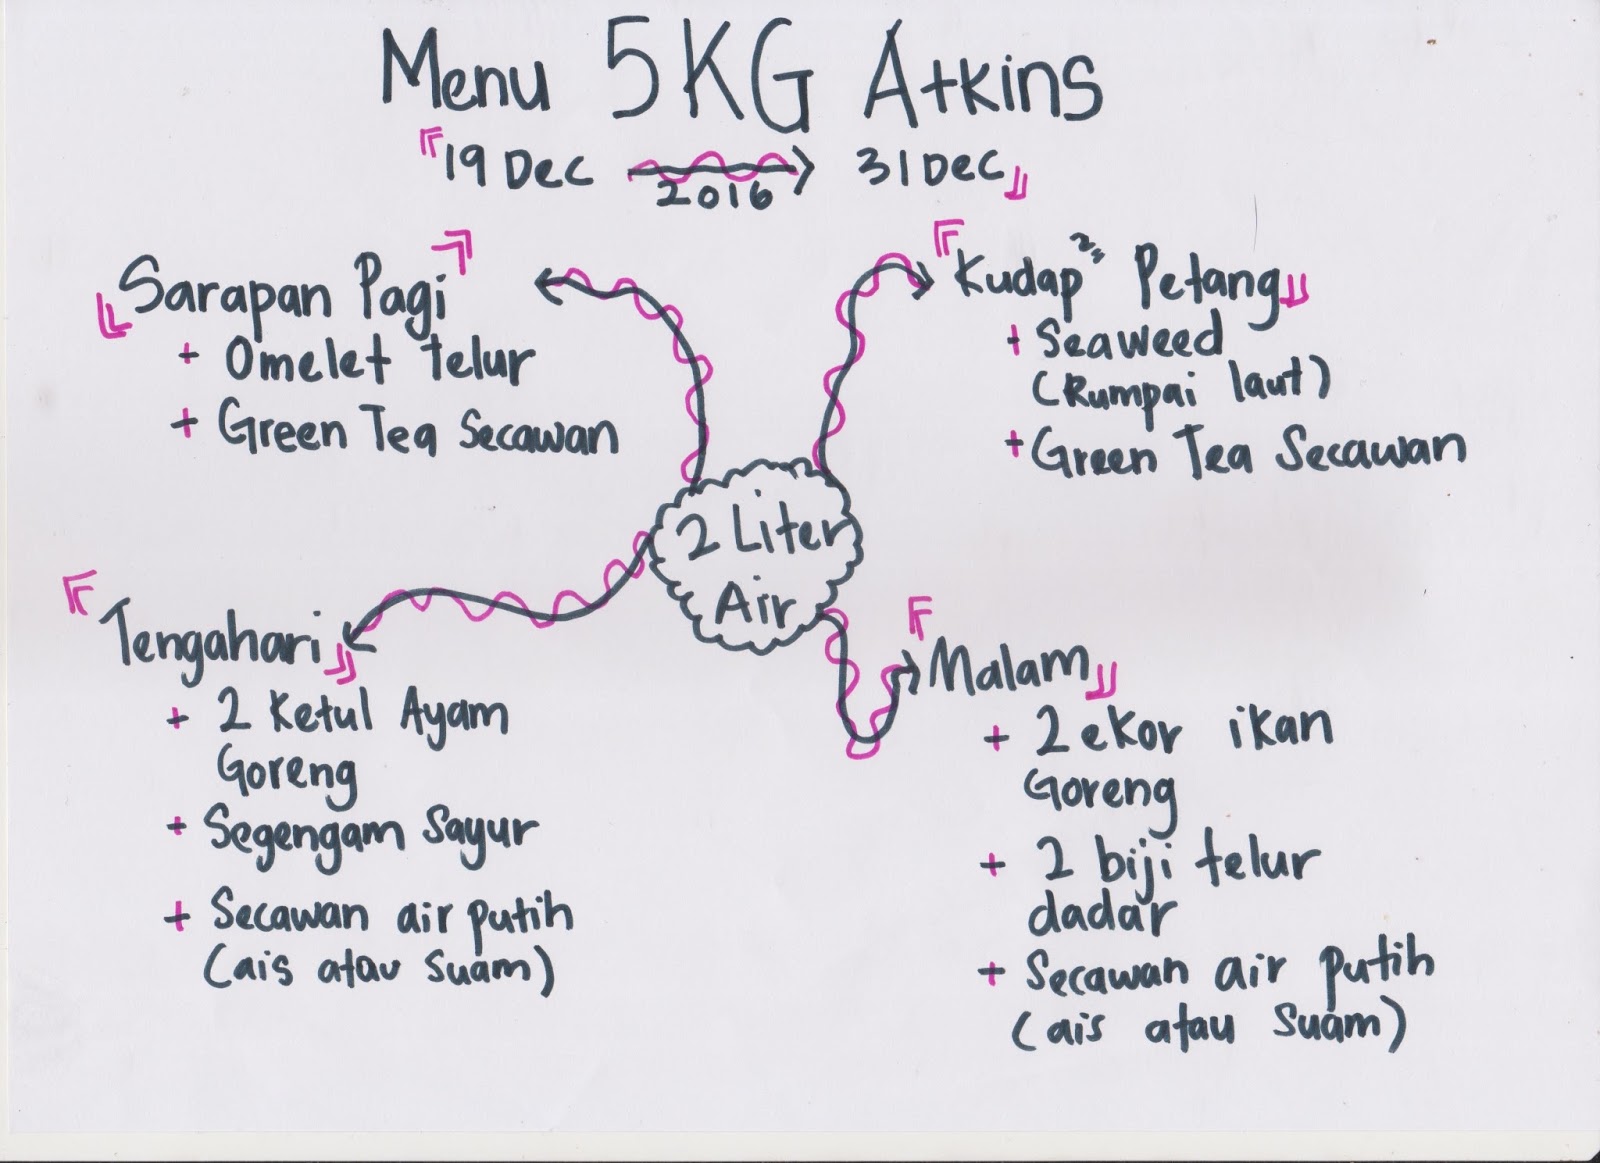 Menu 5KG Atkins
19 Dec 2016 31 Dec
Sarapan Pagi
+ Omelet telur
+ Green Tea Secawan
Kudap² Petang
+ Seaweed
(Rumpai laut)
+ Green Tea Secawan
2 Liter
Air
Tengahari
+ 2 Ketul Ayam
Goreng
+ Segengam Sayur
+ Secawan air putih
(ais atau Suam)
Malam
+ 2 ekor ikan
Goreng
+ 2 biji telur
dadar
+ Secawan air putih
(ais atau Suam)